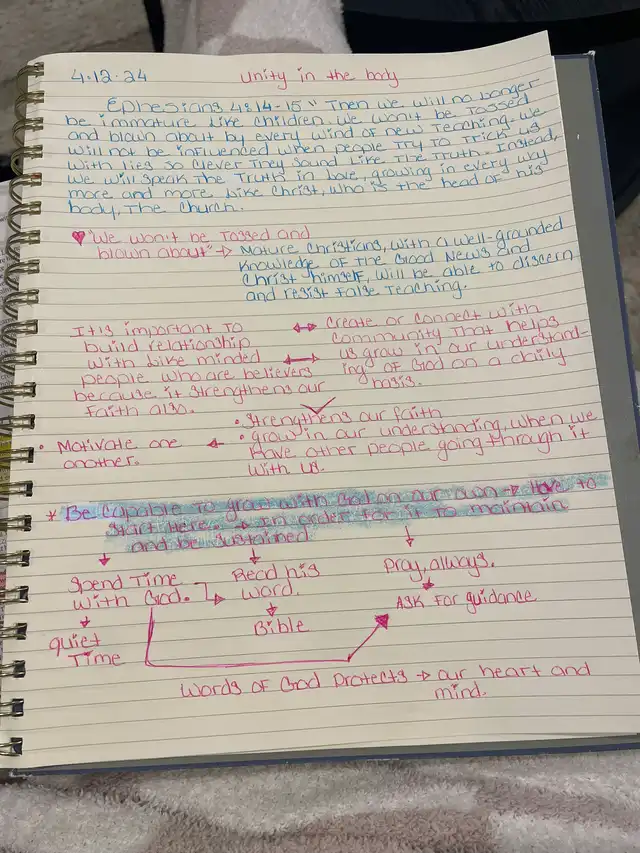 4.12.24 Unity in the body
Ephesians 4:14-15 "Then we will no longer
be immature like children. We won't be Tossed
and blown about by every wind of new Teaching. We
will not be influenced when people Try To Trick us
with lies so clever They sound like The Truth. Instead,
we will speak The Truth in love, growing in every way
more and more like Christ, who is the head of his
body, The Church.
♥ "We won't be Tossed and
blown about" → Mature Christians, with a well-grounded
knowledge of the Good News and
Christ himself, will be able to discern
and resist false teaching.
It is important To ↔ create or connect with
build relationship community That helps
with like minded ↔ us grow in our understand-
people who are believers ing of God on a daily
because it strengthens our basis.
faith also.
• strengthens our faith
• Motivate one ← • grow in our understanding, when we
another. have other people going through it
with us.
* Be capable to grow with God on our own → Have to
start here. → In order for it to maintain
and be sustained.
Spend Time Read his Pray, always.
with God. → word. Ask for guidance
quiet Bible
Time
words of God protects → our heart and
mind.